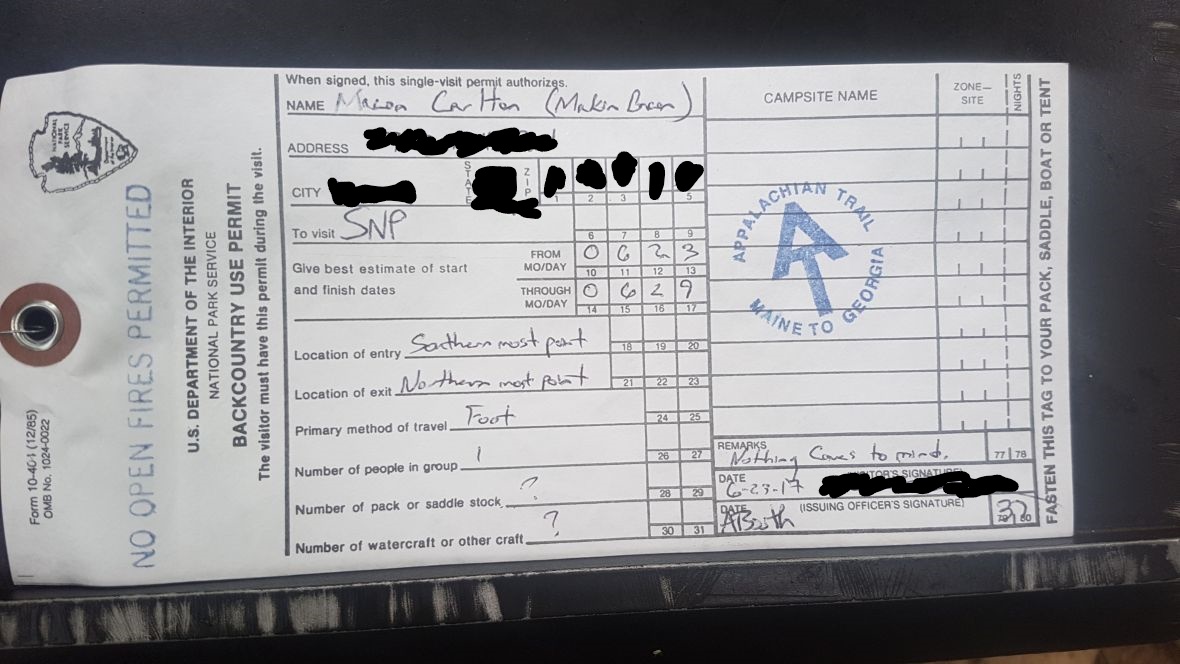 NATIONAL
PARK
SERVICE
Form 10-404 (12/85)
OMB No. 1024-0022
NO OPEN FIRES PERMITTED
U.S. DEPARTMENT OF THE INTERIOR
NATIONAL PARK SERVICE
BACKCOUNTRY USE PERMIT
The visitor must have this permit during the visit.
When signed, this single-visit permit authorizes.
NAME Carlton
ADDRESS
CITY STATE ZIP 1 2 3 5
To visit SNP 6 7 8 9
Give best estimate of start FROM MO/DAY 0 6 2 3
10 11 12 13
and finish dates THROUGH MO/DAY 0 6 2 9
14 15 16 17
Location of entry Southern most point 18 19 20
Location of exit Northern most point 21 22 23
Primary method of travel Foot 24 25
Number of people in group 1 26 27
Number of pack or saddle stock ? 28 29
Number of watercraft or other craft ? 30 31
CAMPSITE NAME ZONE— SITE NIGHTS
APPALACHIAN TRAIL
AT
MAINE TO GEORGIA
REMARKS
Nothing Comes to mind. 77 78
DATE VISITOR'S SIGNATURE)
6-23-17
DATE (ISSUING OFFICER'S SIGNATURE)
ABooth 79 80
FASTEN THIS TAG TO YOUR PACK, SADDLE, BOAT OR TENT